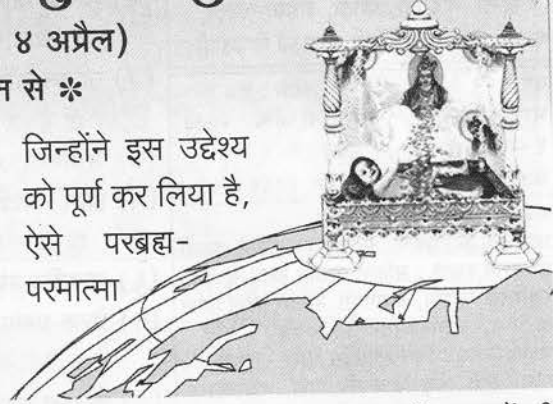 ४ अप्रैल)
से *
जिन्होंने इस उद्देश्य
को पूर्ण कर लिया है,
ऐसे परब्रह्म-
परमात्मा